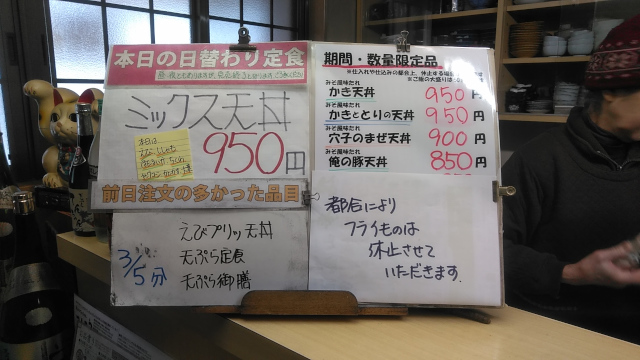 本日の日替わり定食
ミックス天丼
本日は
950円
前日注文の多かった品目
3/5分
えびプリッ天丼
天ぷら定食
天ぷら御膳
期間・数量限定品
みそ風味だれ
かき天丼 950円
みそ風味だれ
かきととりの天丼 950円
みそ風味だれ
穴子のまぜ天丼 900円
みそ風味だれ
俺の豚天丼 850円
都合により
フライものは
休止させて
いただきます.